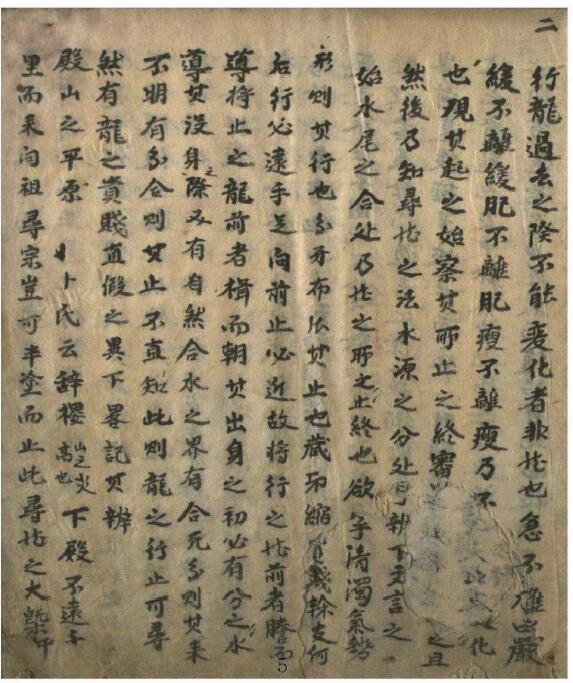 二
行龍過去之際不能変化者非龙也急不離凶嚴
緩不離緩肥不離肥瘦不離瘦乃不化
也观其起之始察其所止之終審之且
然後乃知尋龙之法水源之分处辨下文言之
始水尾之合处乃龙之所之止終也欲清濁氣
形則其行也分牙布爪其止也藏形縮何
右行必遠手足向前止必近故將行之龙前者騰而
導將止之龍前者楫而朝其出身之初必有分之水
導其没身之際又有自然合水之界有合死分則其来
不明有分合則其止不直知此則龍之行止可尋
然有龍之貴賤直假之異下畧記其辨
殿山之平原卜氏云辞樓山之尖高也下殿不遠千
里而来问祖尋宗豈可半塗而止此尋龙之大槩
5